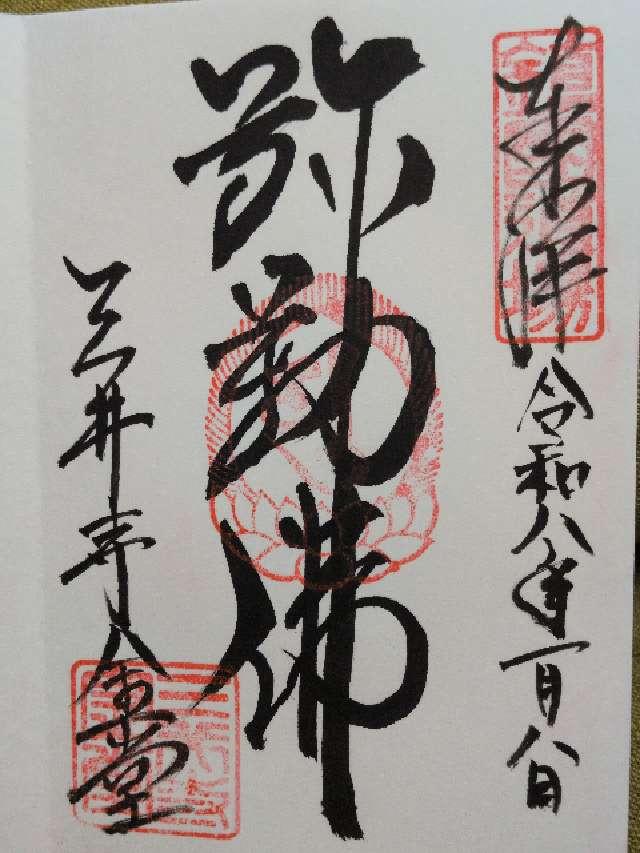 奉拝
令和八年一月八日
弥勒佛
三井寺金堂